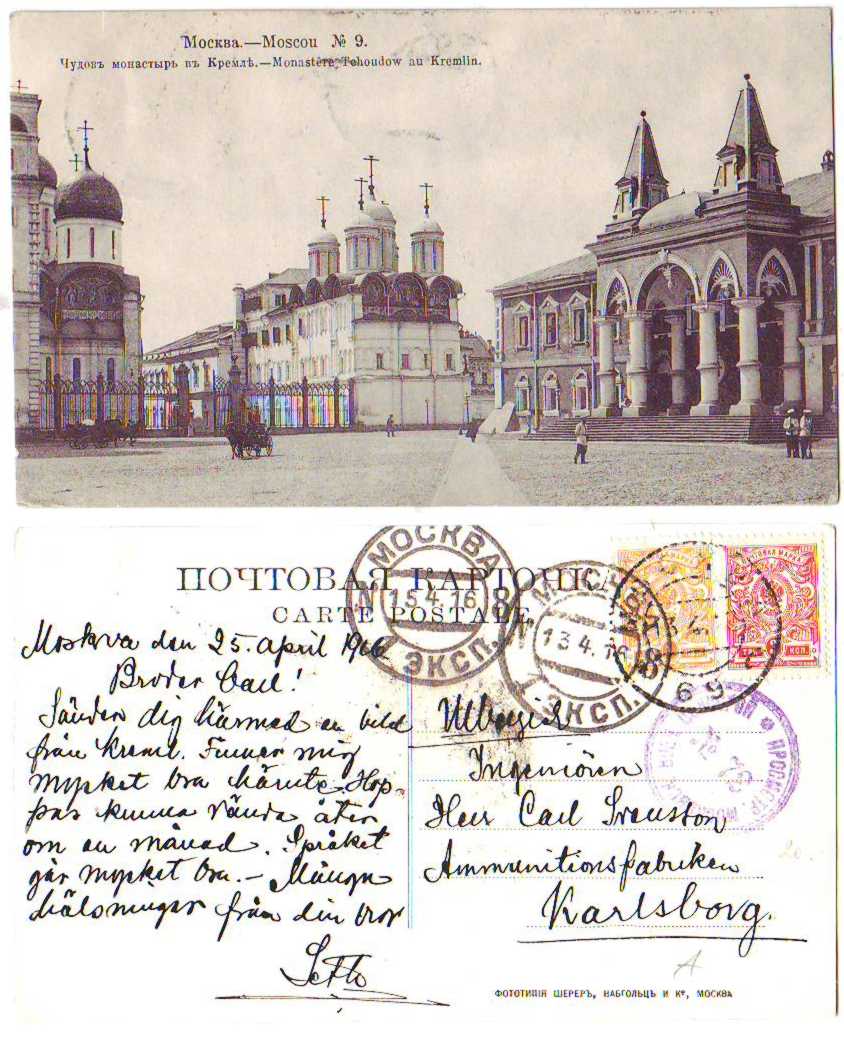 Москва.—Moscou № 9.
Чудовъ монастырь въ Кремлѣ.—Monastère Tchoudow au Kremlin.
ПОЧТОВАЯ КАРТОЧКА
CARTE POSTALE
МОСКВА
15.4.16
8
ЭКСП.
13.4.16
8
ЭКСП.
69
ПОЧТОВАЯ МАРКА
КОП.
Moskva den 25. april 1916
Broder Carl!
Sänder dig härmed en bild
från Kreml. Finner mig
mycket bra härute. Hop-
pas kunna vända åter
om en månad. Språket
går mycket bra. – Många
hälsningar från din bror
Швецiя
Ingeniören
Herr Carl Svensson
Ammunitionsfabriken
Karlsborg.
ФОТОТИПІЯ ШЕРЕРЪ, НАБГОЛЬЦЪ И Кº, МОСКВА